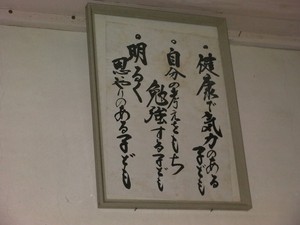 。健康で気力のある子ども
。自分の考えをもち
勉強する子ども
。明るく
思やりのある子ども